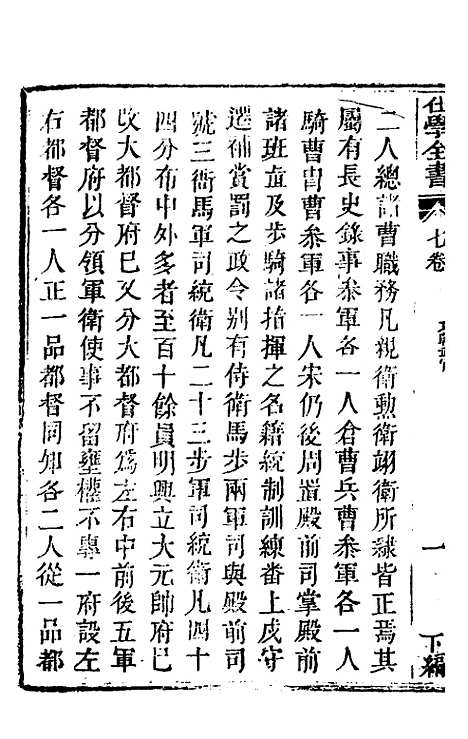 仕學全書
七卷
一
下編
二人總諸曹職務凡親衛勳衛翊衛所隸皆正焉其
屬有長史錄事叅軍各一人倉曹兵曹叅軍各一人
騎曹胄曹叅軍各一人宋仍後周置殿前司掌殿前
諸班直及步騎諸指揮之名籍統制訓練番上戍守
遷補賞罰之政令别有侍衛馬步兩軍司與殿前司
號三衙馬軍司統衛凡二十三步軍司統衛凡四十
四分布中外多者至百十餘員明興立大元帥府已
改大都督府已又分大都督府爲左右中前後五軍
都督府以分領軍衛使事不留壅權不專一府設左
右都督各一人正一品都督同知各二人從一品都